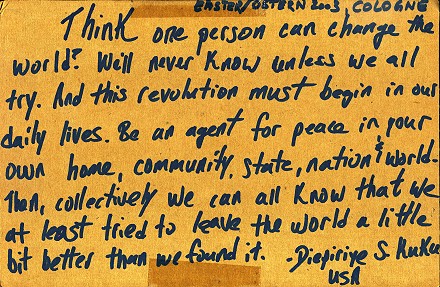 EASTER/OSTERN 2003, COLOGNE
Think one person can change the
world? We'll never know unless we all
try. And this revolution must begin in our
daily lives. Be an agent for peace in your
own home, community, state, nation & world.
Then, collectively we can all know that we
at least tried to leave the world a little
bit better than we found it. - Diepiriye S. Kuku
USA